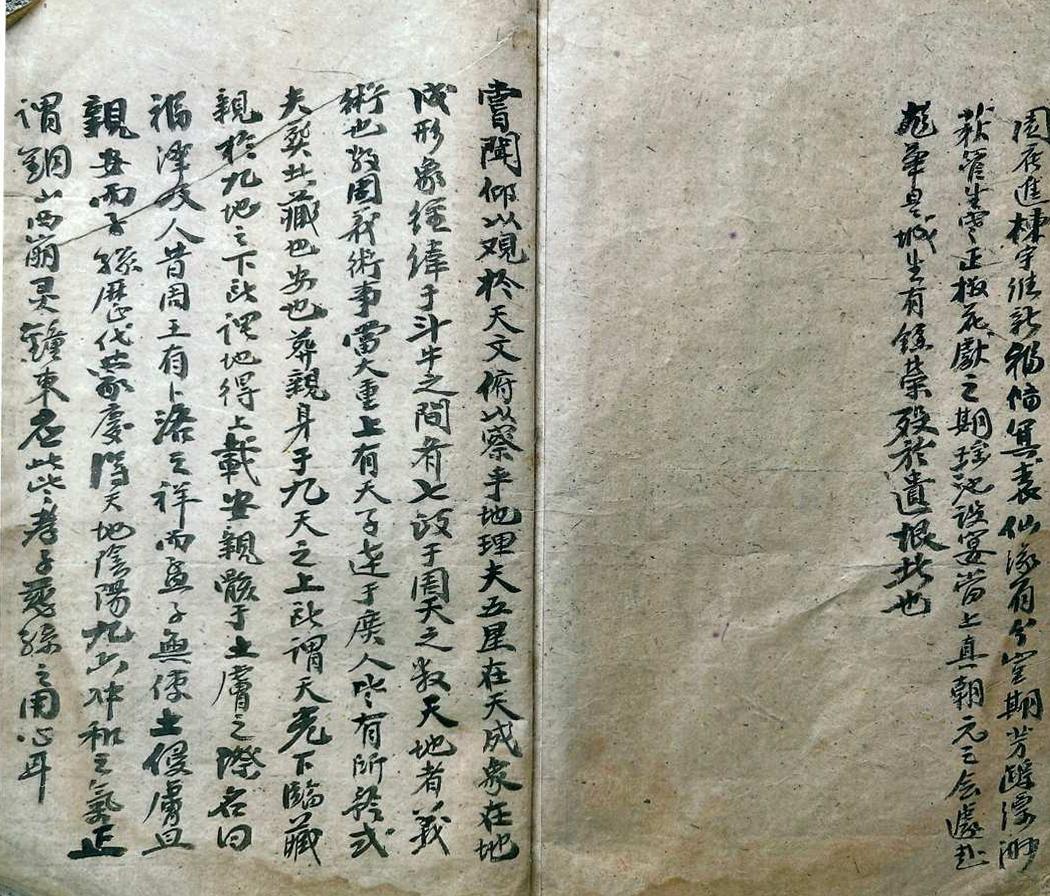 進棟宇維新福備冥袁仙家有分室期芳
管生雲正極花獻之期瑤池設宴當上真朝元之会遠赴
華是城生有餘榮歿於遺恨此也
嘗聞仰以观於天文俯以察乎地理夫五星在天成象在地
成形象經緯于斗牛之間者七政于周天之数天地者義
術也数周義術事當大重上有天子達于庶人皆有所
夫葬者藏也安也葬親身于九天之上此謂天光下臨藏
親於九地之下此謂地得上載安親骸于土膚之際名曰
福澤及人昔周王有卜洛之祥而孟子無使土侵膚且
親安而子孫歷代蒙慶得天地陰陽九六冲和之氣正
謂銅山西崩灵鐘東應此皆孝子慈孫之用心耳